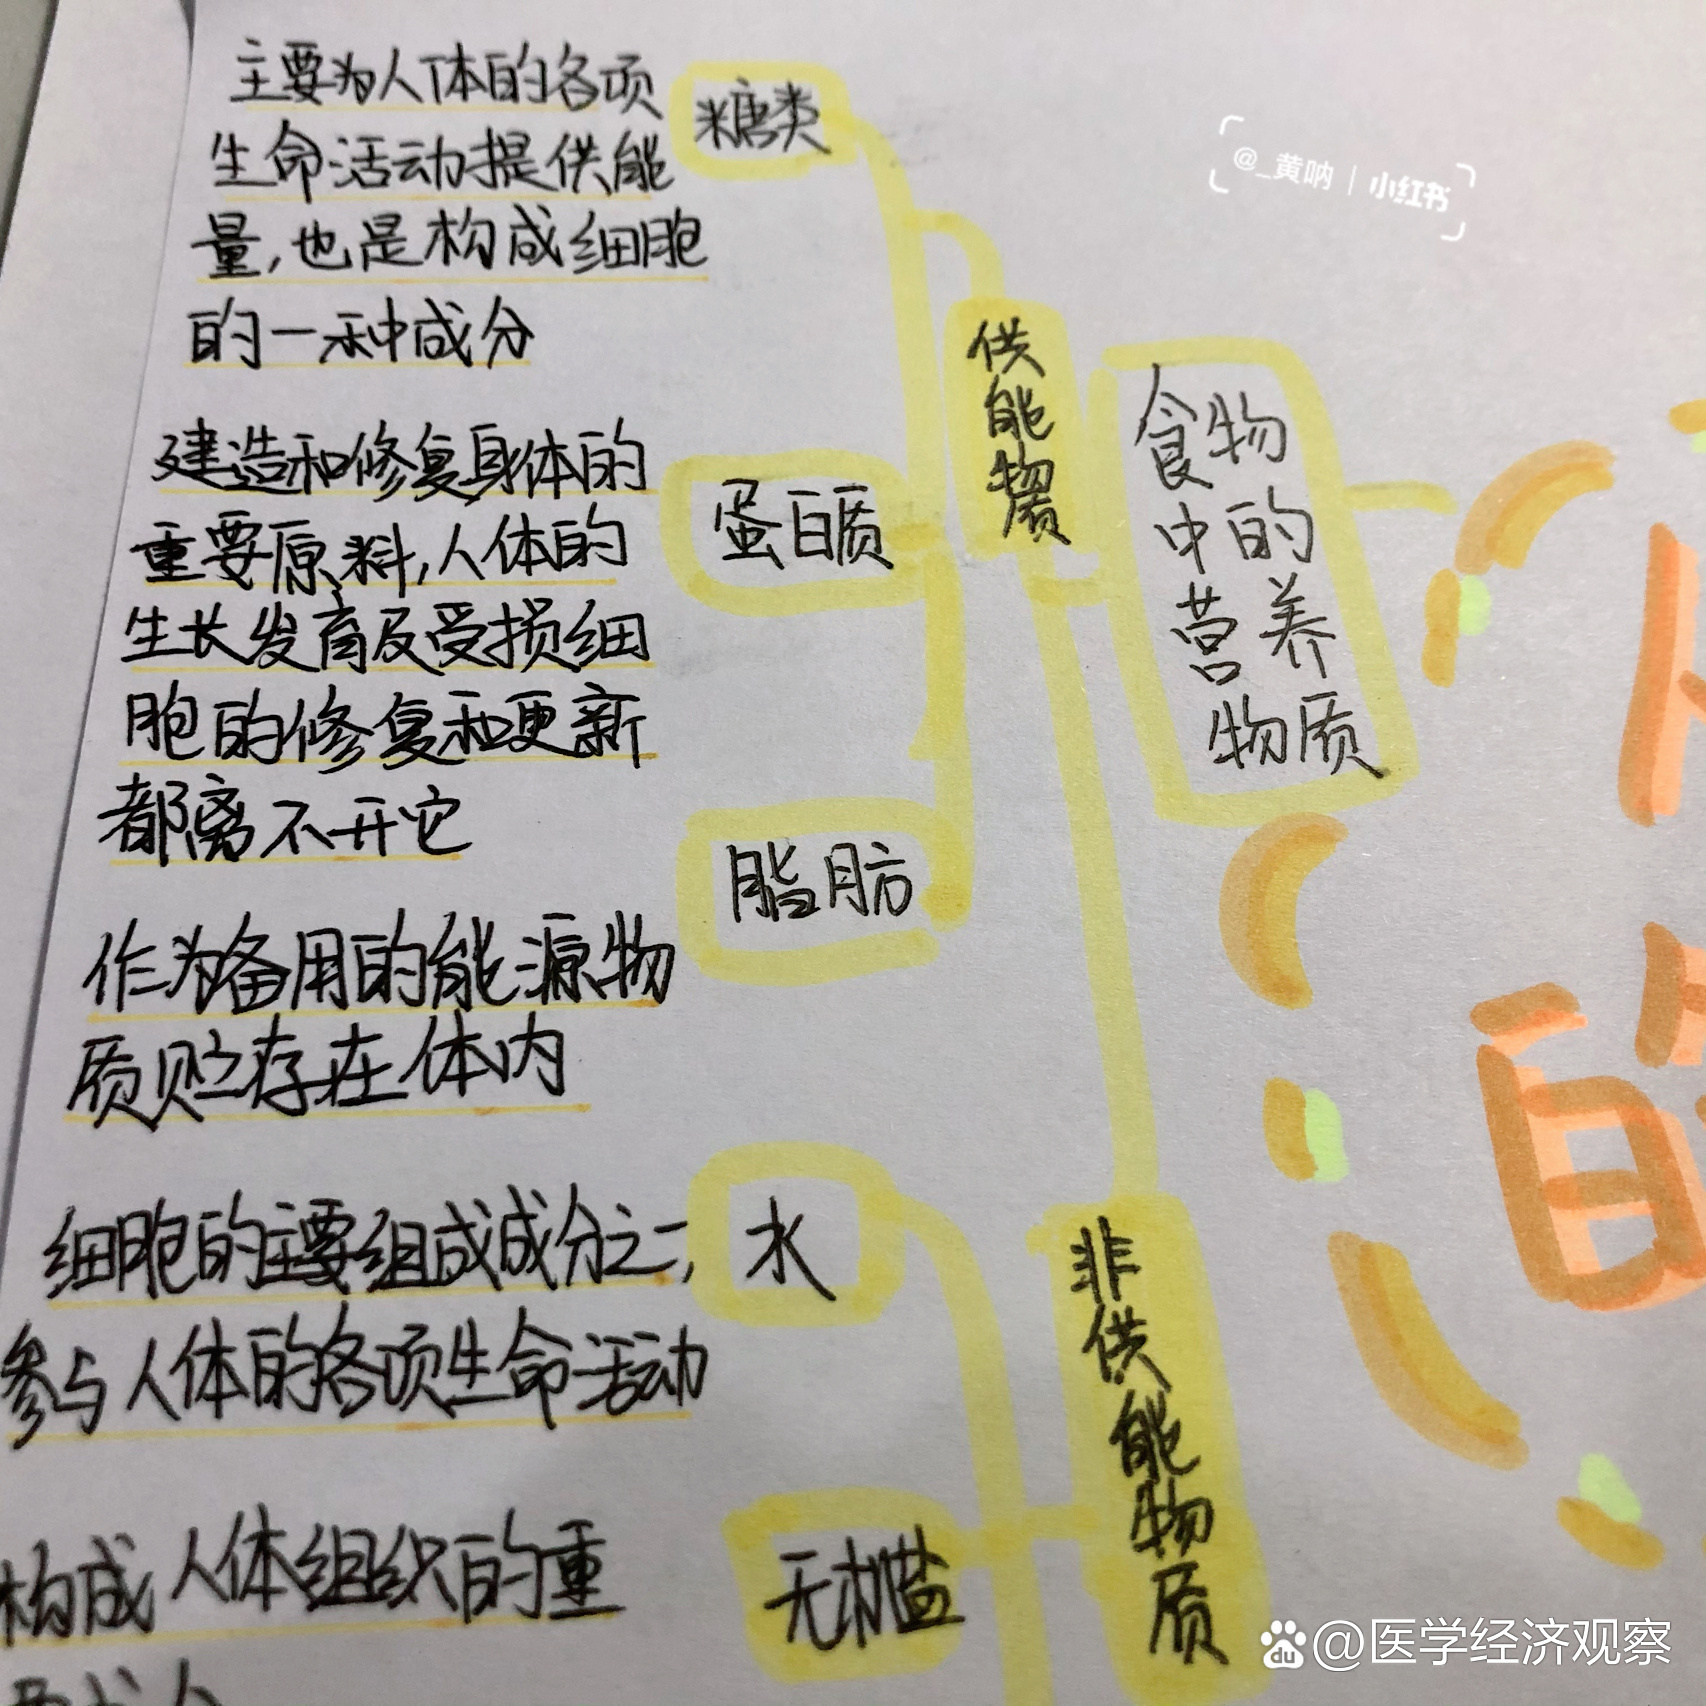 主要为人体的各项
生命活动提供能
量,也是构成细胞
的一种成分
糖类
建造和修复身体的
重要原料,人体的
生长发育及受损细
胞的修复和更新
都离不开它
蛋白质
作为备用的能源物
质贮存在体内
脂肪
供能物质
细胞的主要组成成分之一,
参与人体的各项生命活动
水
构成人体组织的重
无机盐
非供能物质
食物
中的
营养
物质
的
@_黄呐 | 小红书
du @医学经济观察